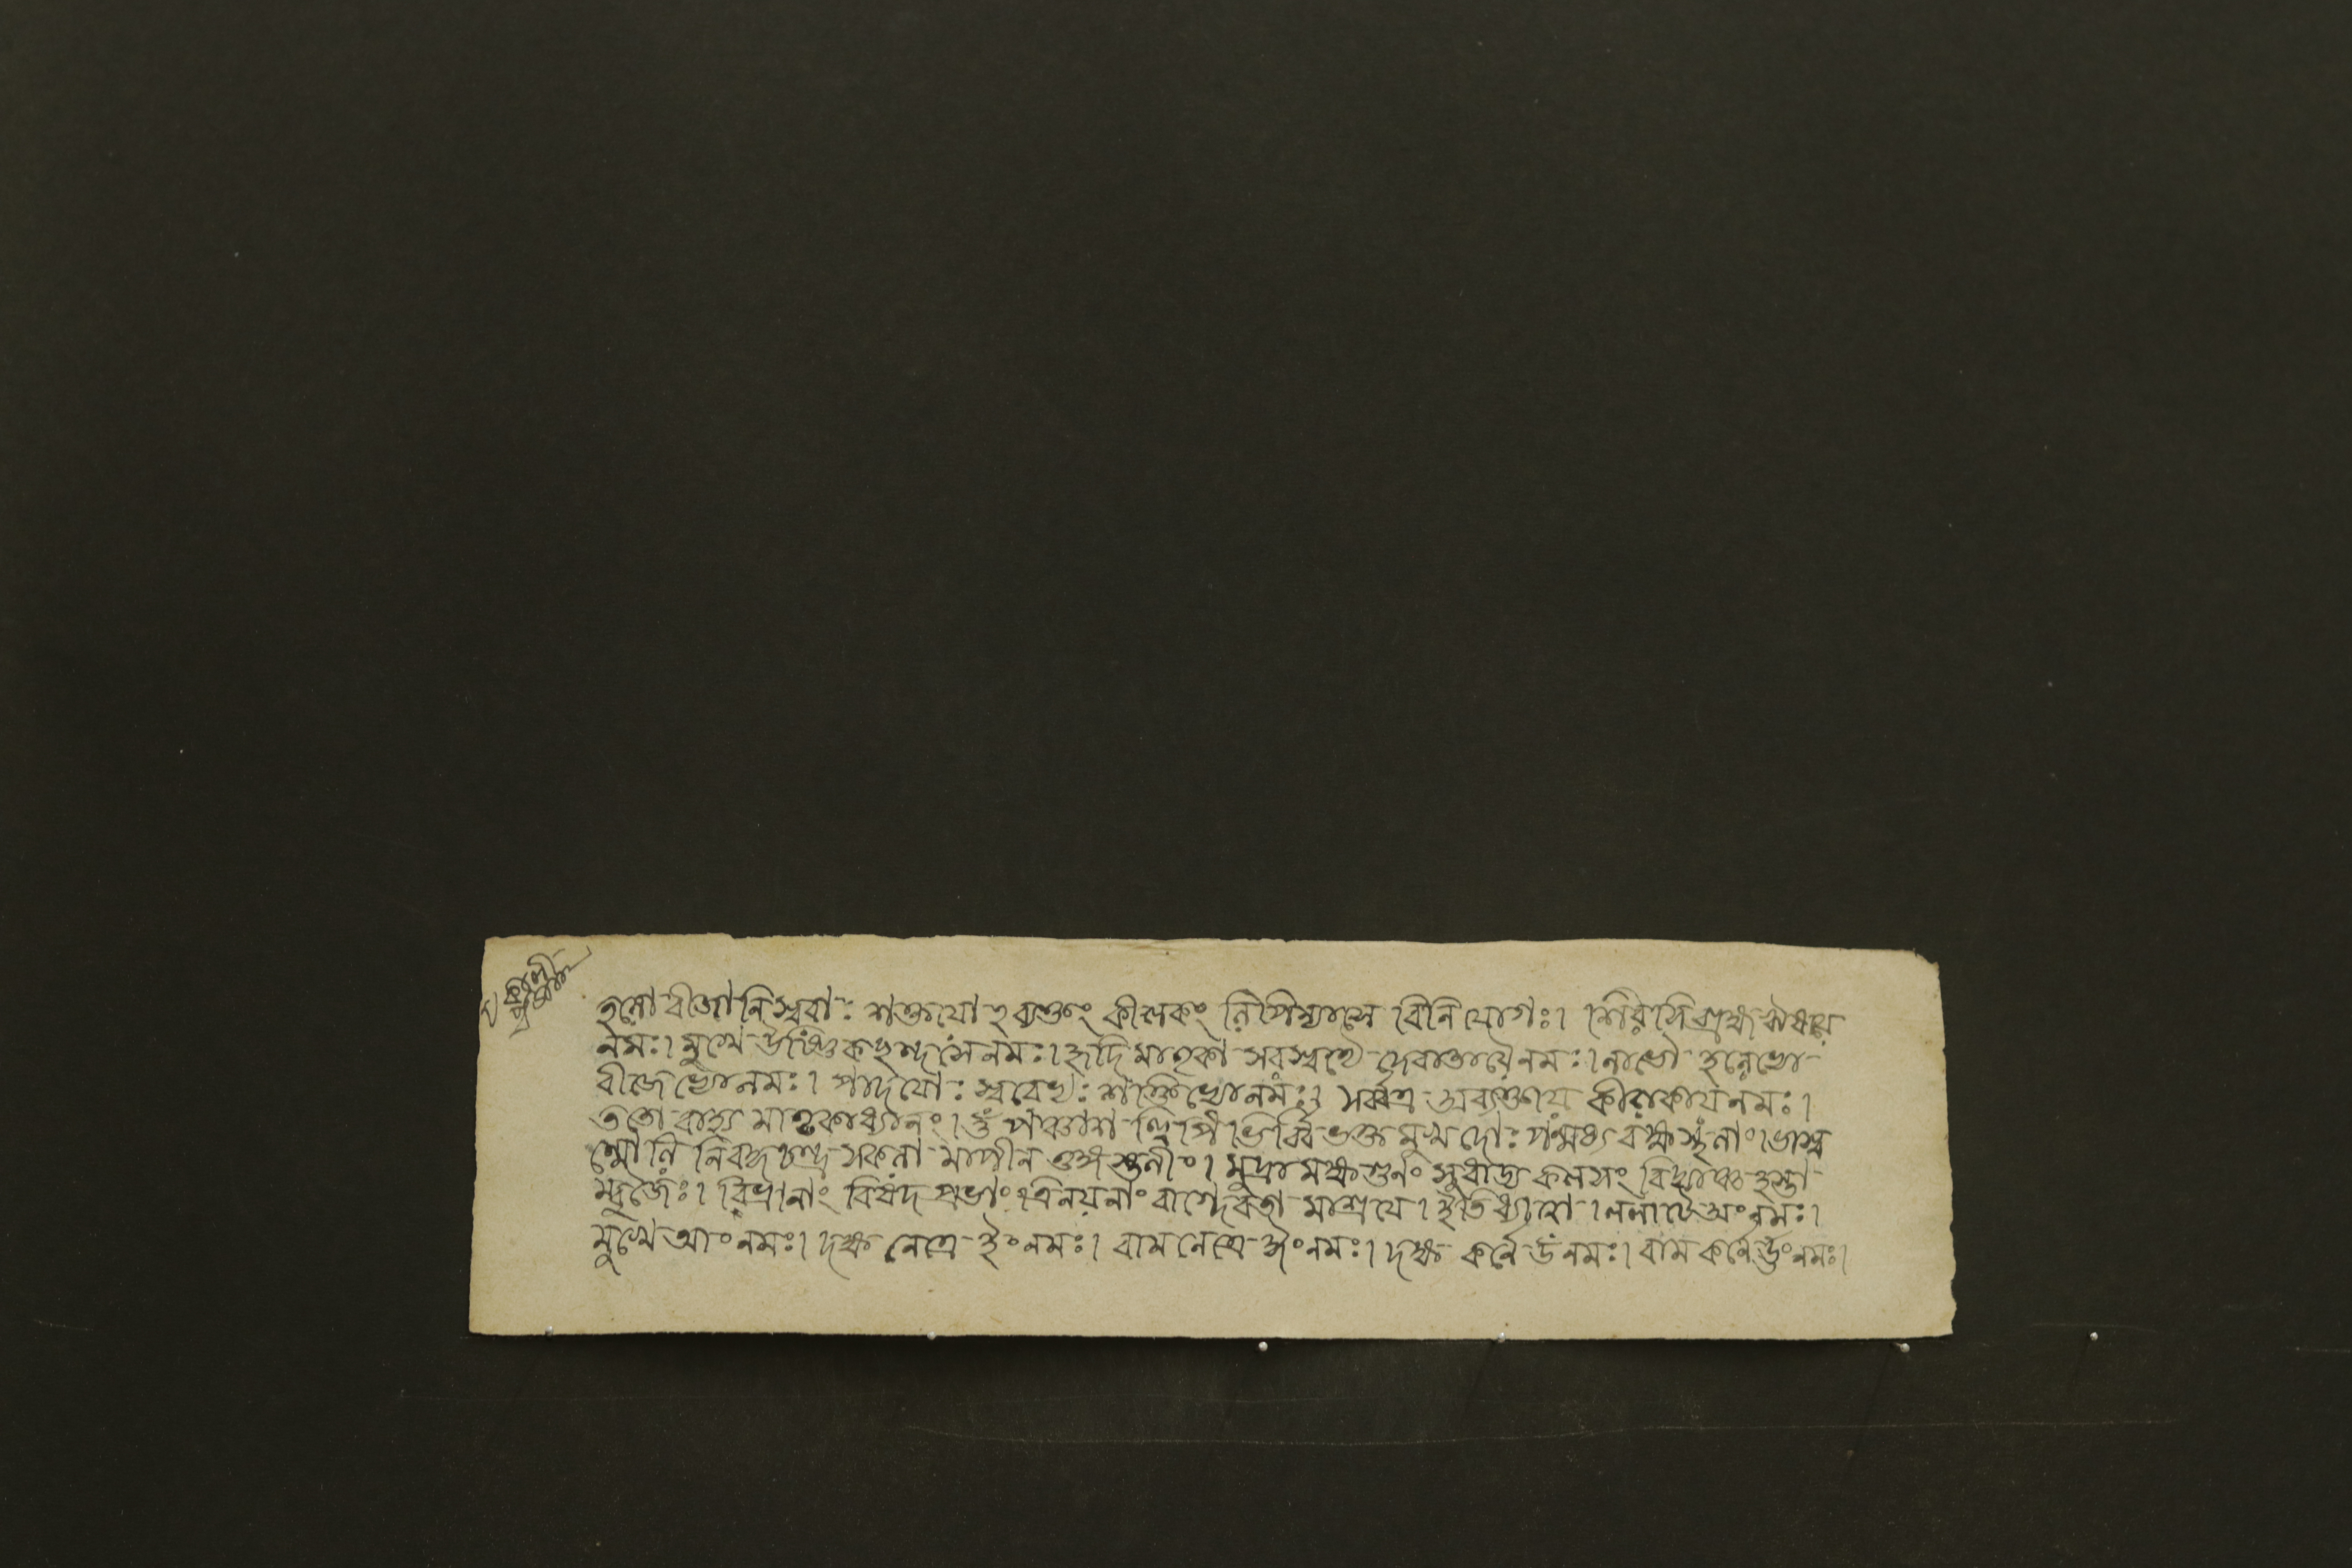 হলো বীজানি স্বরা: শক্তযো ঽব্যক্তং কীলকং লিপিন্যাসে বিনিযোগঃ। শিরসি ব্রহ্ম ঋষয়ে
নমঃ। মুখে উষ্ণিক ছন্দসে নমঃ। হৃদি মাতৃকা সরস্বত্যৈ দেবাতায়ৈ নমঃ। নাভৌ হল্ভ্যো
বীজেভ্যো নমঃ। পাদযো: স্বরেভ্য: শক্তিভ্যো নমঃ। সর্ব্বত্র অব্যক্তায় কীলকায় নমঃ।
ততো বাহ্য মাতৃকাধ্যানং। ওঁ পঞ্চাশ ল্লিপি ভির্ব্বিভক্ত মুখ দো: পন্মধ্য বক্ষ স্থলাং ভাস্ব
ন্মৌলি নিবদ্ধ চন্দ্র সকলা মাপীন তুঙ্গ স্তনীং। মুদ্রা মক্ষ গুনং সুধাঢ্য কলসং বিদ্যাঞ্চ হস্তা
ম্বুজৈঃ। বিভ্রানাং বিষদ প্রভাং ত্রিনয়নাং বাগ্দেবতা মাশ্রযে। ইতি ধ্যাত্বা। ললাটে অং নমঃ।
মুখে আং নমঃ। দক্ষ নেত্রে ইং নমঃ। বাম নেত্রে ঈং নমঃ। দক্ষ কর্নে উং নমঃ। বাম কর্নে ঊং নমঃ।